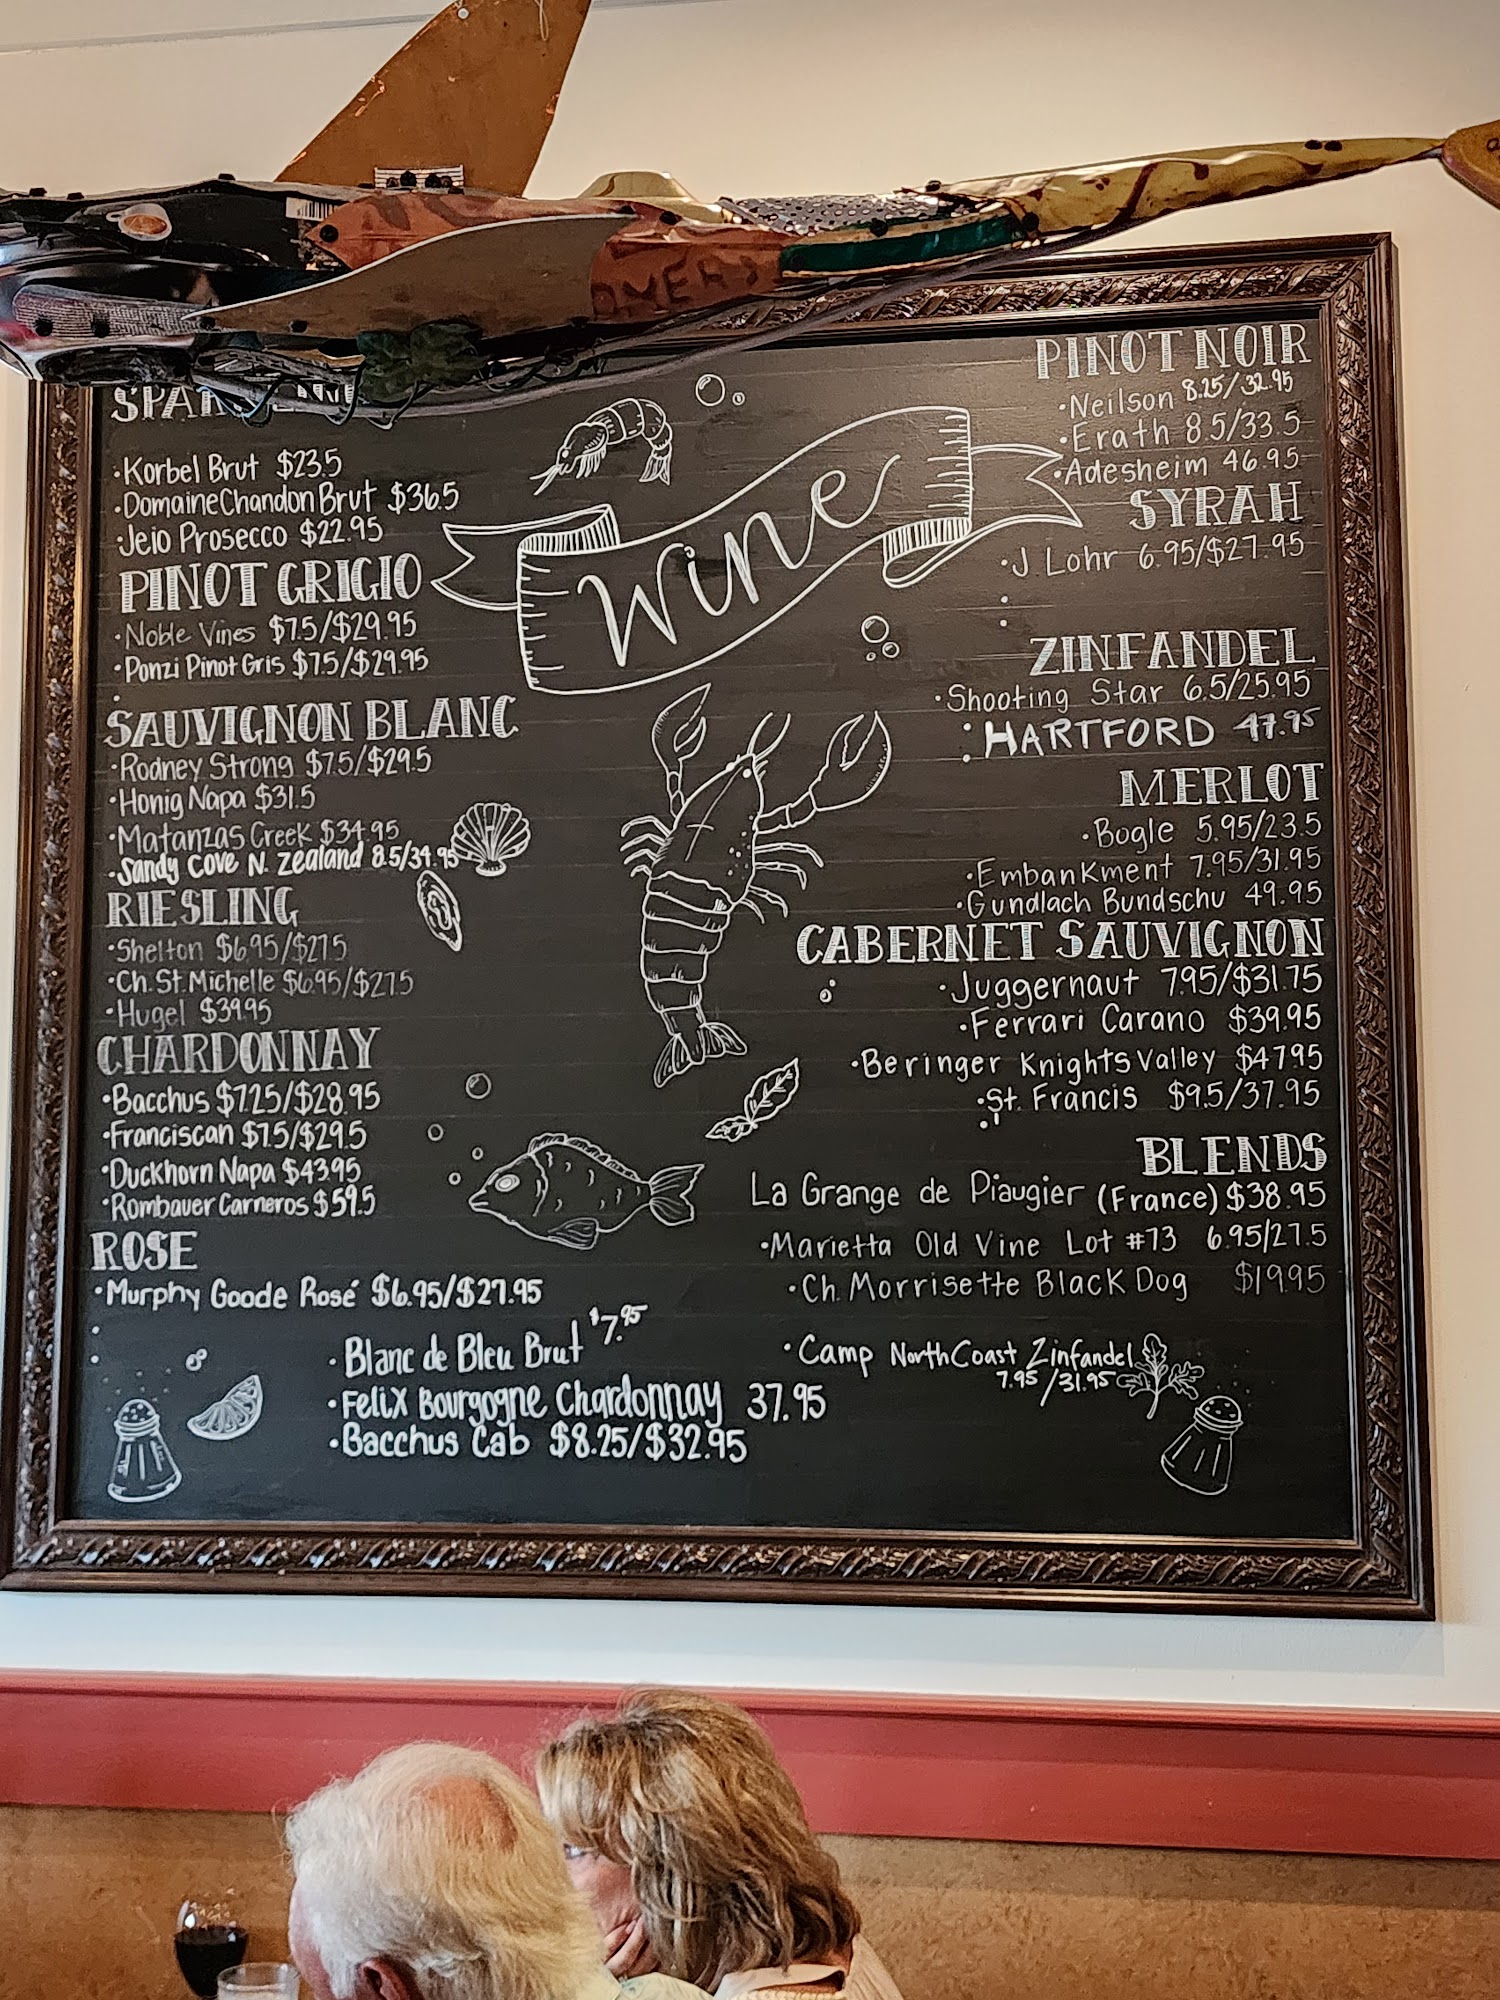 ·Korbel Brut $23.5
·Domaine Chandon Brut $36.5
·Jeio Prosecco $22.95
PINOT GRIGIO
·Noble Vines $7.5/$29.95
·Ponzi Pinot Gris $7.5/$29.95
SAUVIGNON BLANC
·Rodney Strong $7.5/$29.5
·Honig Napa $31.5
·Matanzas Creek $34.95
·Sandy Cove N. Zealand 8.5/34.95
RIESLING
·Shelton $6.95/$27.5
·Ch. St. Michelle $6.95/$27.5
·Hugel $39.95
CHARDONNAY
·Bacchus $7.25/$28.95
·Franciscan $7.5/$29.5
·Duckhorn Napa $43.95
·Rombauer Carneros $59.5
ROSE
·Murphy Goode Rosé $6.95/$27.95
Wine
PINOT NOIR
·Neilson 8.25/32.95
·Erath 8.5/33.5
·Adesheim 46.95
SYRAH
·J Lohr 6.95/$27.95
ZINFANDEL
·Shooting Star 6.5/25.95
·HARTFORD 47.95
MERLOT
·Bogle 5.95/23.5
·Embankment 7.95/31.95
·Gundlach Bundschu 49.95
CABERNET SAUVIGNON
·Juggernaut 7.95/$31.75
·Ferrari Carano $39.95
·Beringer Knights Valley $47.95
·St. Francis $9.5/37.95
BLENDS
La Grange de Piaugier (France) $38.95
·Marietta Old Vine Lot #73 6.95/27.5
·Ch. Morrisette Black Dog $19.95
·Blanc de Bleu Brut $7.95
·Felix Bourgogne Chardonnay 37.95
·Bacchus Cab $8.25/$32.95
·Camp North Coast Zinfandel
7.95/31.95